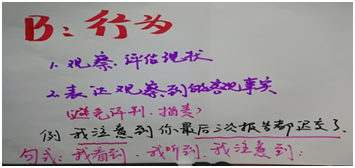 B：行为
1. 观察、评估现状
2. 表达观察到的客观事实
(避免评判、指责)
例 我注意到你最后三次报告都迟交了.
句式：我看到、我听到、我注意到：